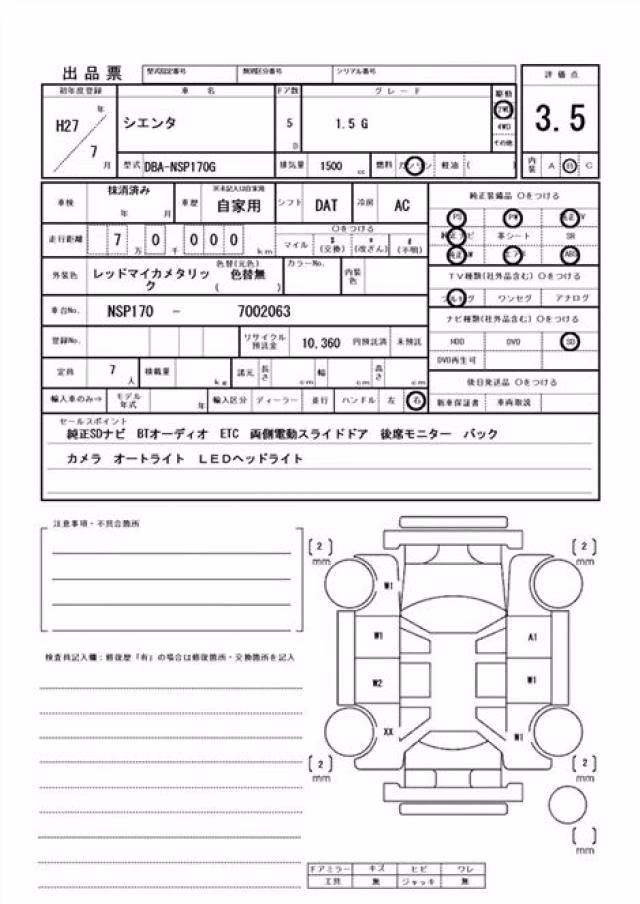 出品票 型式指定番号 類別区分番号 シリアル番号
初年度登録 車名 ドア数 グレード 駆動 評価点
H27 年 7 月 シエンタ 5 D 1.5 G 2WD 4WD その他 3.5
型式 DBA-NSP170G 排気量 1500 cc 燃料 ガソリン 軽油 ( ) 内装 A B C
車検 抹消済み 年 月 車歴 ※未記入は自家用 自家用 シフト DAT 冷房 AC 純正装備品 ○をつける
PS PW 純正TV
走行距離 7 万 0 千 0 0 0 km ○をつける マイル $ (交換) * (改ざん) # (不明) 純正ナビ 革シート SR
純正AW エアB ABS
外装色 レッドマイカメタリック 色替(元色) 色替無 ( ) カラーNo. 内装色 TV種類(社外品含む) ○をつける
フルセグ ワンセグ アナログ
車台No. NSP170 - 7002063 ナビ種類(社外品含む) ○をつける
登録No. リサイクル預託金 10,360 円預託済 未預託 HDD DVD SD
DVD再生可
定員 7 人 積載量 kg 諸元 長さ cm 幅 cm 高さ cm 後日発送品 ○をつける
輸入車のみ⇒ モデル年式 年 輸入区分 ディーラー 並行 ハンドル 左 右 新車保証書 車両取説
セールスポイント
純正SDナビ BTオーディオ ETC 両側電動スライドドア 後席モニター バック
カメラ オートライト LEDヘッドライト
注意事項・不具合箇所
[2] mm [2] mm
W1
W1 A1
検査員記入欄:修復歴「有」の場合は修復箇所・交換箇所を記入
W2 W1
XX W1
[2] mm [2] mm
[ ] mm
ドアミラー キズ ヒビ ワレ
工具 無 ジャッキ 無